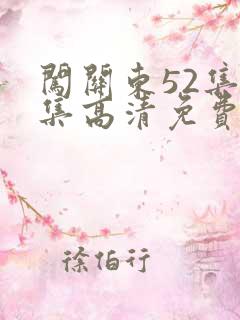 闖關東52集
集高清免費
徐伯行